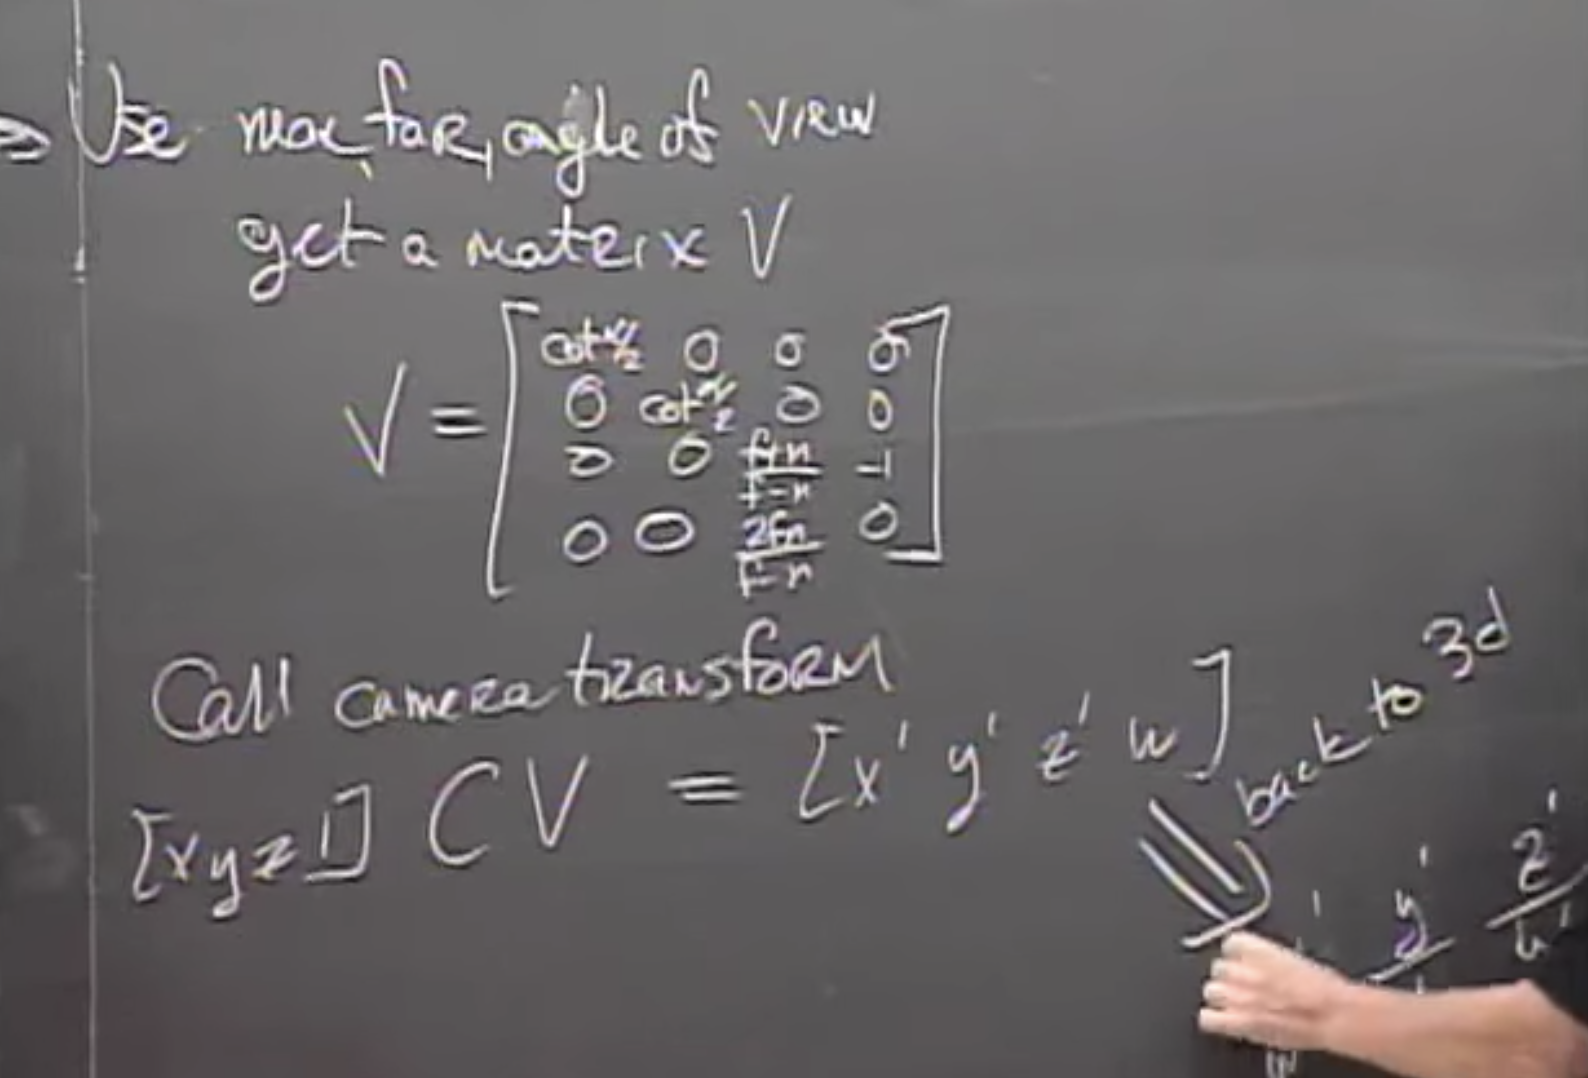 Use near, far, angle of view
get a matrix V
V = [ cot α/2 0 0 0
0 cot α/2 0 0
0 0 f+n/f-n -1
0 0 2fn/f-n 0 ]
Call camera transform
[x y z 1] C V = [x' y' z' w]
back to 3d
y' z'/w'